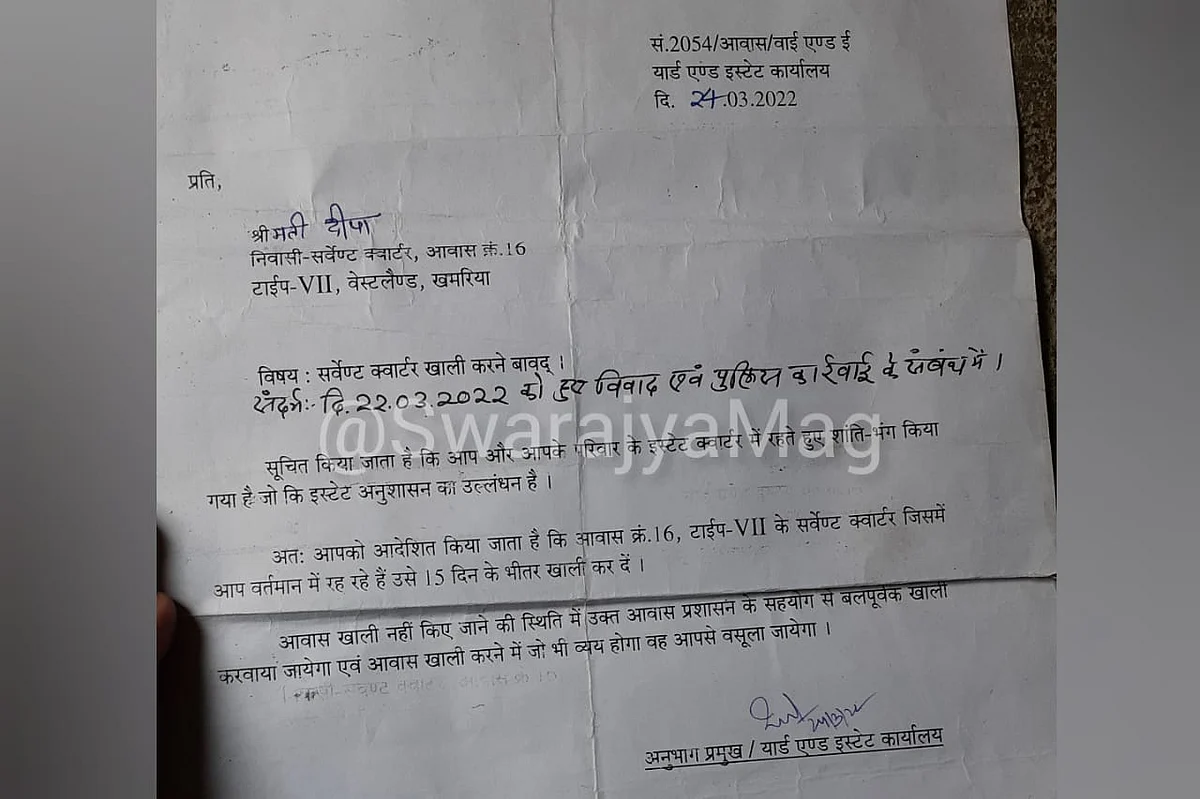 सं.2054/आवास/वाई एण्ड ई
यार्ड एण्ड इस्टेट कार्यालय
दि. 24.03.2022
प्रति,
श्रीमती दीपा
निवासी-सर्वेण्ट क्वार्टर, आवास क्रं.16
टाईप-VII, वेस्टलैण्ड, खमरिया
विषय : सर्वेण्ट क्वार्टर खाली करने बावद् ।
संदर्भ:- दि. 22.03.2022 को हुए विवाद एवं पुलिस कार्रवाई के संबंध में ।
@SwarajyaMag
सूचित किया जाता है कि आप और आपके परिवार के इस्टेट क्वार्टर में रहते हुए शांति-भंग किया
गया है जो कि इस्टेट अनुशासन का उल्लंधन है ।
अतः आपको आदेशित किया जाता है कि आवास क्रं.16, टाईप-VII के सर्वेण्ट क्वार्टर जिसमें
आप वर्तमान में रह रहे हैं उसे 15 दिन के भीतर खाली कर दें ।
आवास खाली नहीं किए जाने की स्थिति में उक्त आवास प्रशासन के सहयोग से बलपूर्वक खाली
करवाया जायेगा एवं आवास खाली करने में जो भी व्यय होगा वह आपसे वसूला जायेगा ।
अनुभाग प्रमुख / यार्ड एण्ड इस्टेट कार्यालय